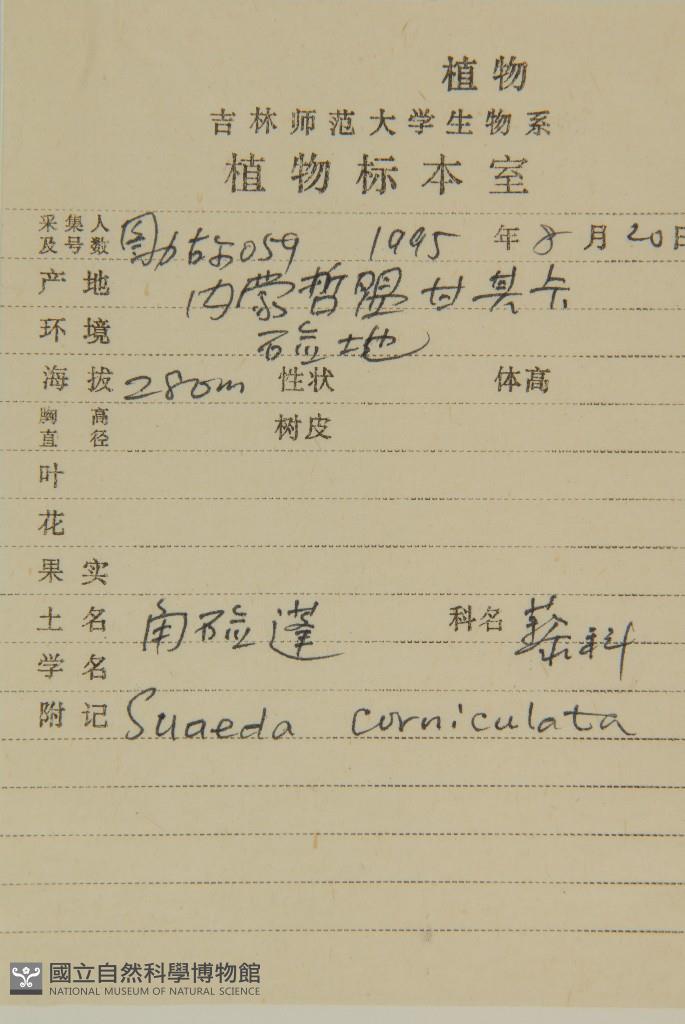 植物
吉林师范大学生物系
植物标本室
采集人及号数 059 1995年8月20日
产地 内蒙哲盟甘其卡
环境 硷地
海拔 280m 性状 体高
胸高直径 树皮
叶
花
果实
土名 角硷蓬 科名 藜科
学名
附记 Suaeda corniculata
國立自然科學博物館
NATIONAL MUSEUM OF NATURAL SCIENCE